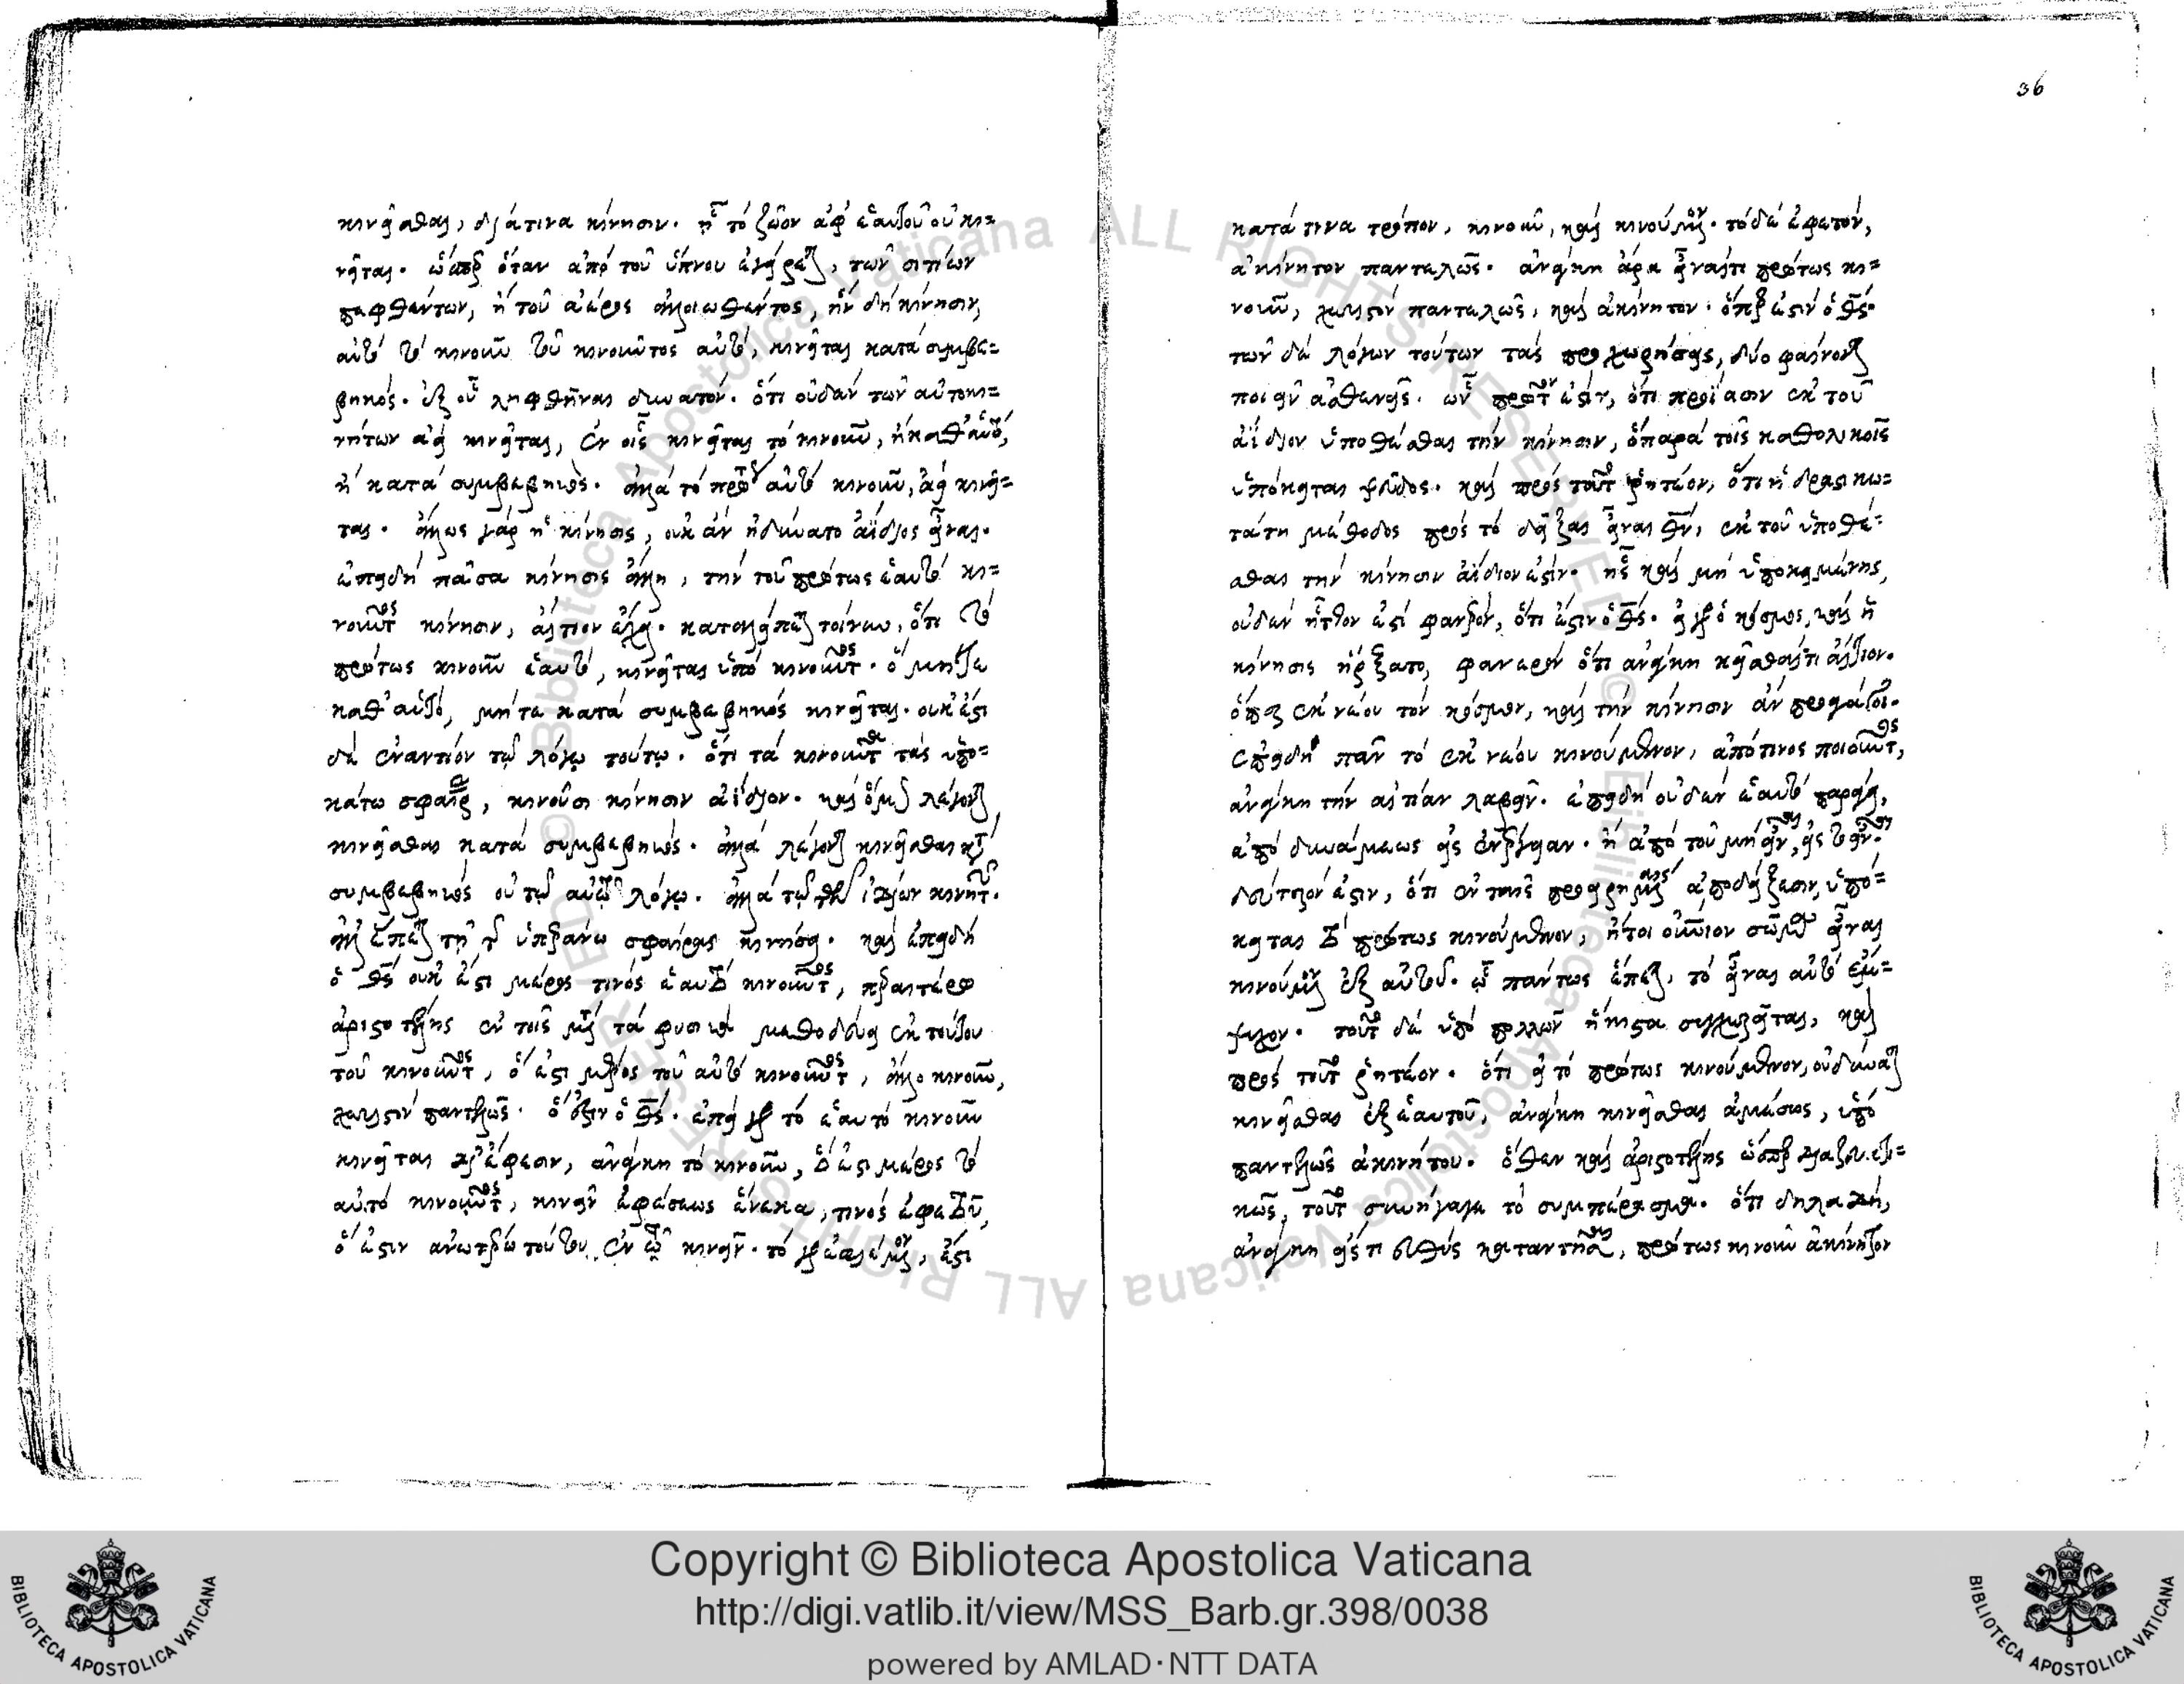 κινεῖσθαι, διά τινα κίνησιν. ᾗ τὸ ζῶον ἀφ' ἑαυτοῦ οὐ κι=
νεῖται. ὥσπερ ὅταν ἀπὸ τοῦ ὕπνου ἐγείρεται, τῶν σιτίων
πεφθέντων, ἢ τοῦ ἀέρος ἀλλοιωθέντος, ἣν δὴ κίνησιν,
αὐτὸ τὸ κινοῦν τοῦ κινοῦντος αὐτό, κινεῖται κατὰ συμβε=
βηκός. ἐξ οὗ ληφθῆναι δυνατόν. ὅτι οὐδὲν τῶν αὐτοκι=
νήτων ἀεὶ κινεῖται, ἐν οἷς κινεῖται τὸ κινοῦν, ἢ καθ' αὑτό,
ἢ κατὰ συμβεβηκός. ἀλλὰ τὸ πρῶτον αὐτὸ κινοῦν, ἀεὶ κινεῖ=
ται. ἄλλως γὰρ ἡ κίνησις, οὐκ ἂν ἠδύνατο ἀΐδιος εἶναι.
ἐπειδὴ πᾶσα κίνησις ἄλλη, τὴν τοῦ πρώτως ἑαυτὸ κι=
νοῦντος κίνησιν, αἴτιον ἔχει. καταλείπεται τοίνυν, ὅτι τὸ
πρώτως κινοῦν ἑαυτό, κινεῖται ὑπὸ κινοῦντος. ὃ μήτε
καθ' αὑτό, μήτε κατὰ συμβεβηκὸς κινεῖται. οὐκ ἔστι
δὲ ἐναντίον τῷ λόγῳ τούτῳ. ὅτι τὰ κινοῦντα τὰς ὑπο=
κάτω σφαίρας, κινοῦσι κίνησιν ἀΐδιον. καὶ ὅμως λέγονται
κινεῖσθαι κατὰ συμβεβηκός. ἀλλὰ λέγονται κινεῖσθαι κατὰ
συμβεβηκὸς οὐ τῷ αὐτῶν λόγῳ. ἀλλὰ τῷ τῶν ἰδίων κινητῶν.
ἃ ἕπεται τῇ τῆς ὑπεράνω σφαίρας κινήσει. καὶ ἐπειδὴ
ὁ θς οὐκ ἔστι μέρος τινὸς ἑαυτὸ κινοῦντος, περαιτέρω
ἀριστοτέλης ἐν τοῖς μετὰ τὰ φυσικὰ μεθοδεύει ἐκ τούτου
τοῦ κινοῦντος, ὅ ἐστι μέρος τοῦ αὐτὸ κινοῦντος, ἄλλο κινοῦν,
χωριστὸν παντελῶς. ὅ ἐστιν ὁ θς. ἐπεὶ γὰρ τὸ ἑαυτὸ κινοῦν
κινεῖται κατ' ἔφεσιν, ἀνάγκη τὸ κινοῦν, ὅ ἐστι μέρος τοῦ
αὐτὸ κινοῦντος, κινεῖν ἐφέσεως ἕνεκα, τινὸς ἐφετοῦ,
ὅ ἐστιν ἀνωτέρω τούτου ἐν τῷ κινεῖν. τὸ γὰρ ἐφιέμενον, ἐστὶ
36
κατά τινα τρόπον, κινοῦν, καὶ κινούμενον. τὸ δὲ ἐφετόν,
ἀκίνητον παντελῶς. ἀνάγκη ἄρα εἶναί τι πρώτως κι=
νοῦν, χωριστὸν παντελῶς, καὶ ἀκίνητον. ὅπερ ἐστὶν ὁ θς.
τῶν δὲ λόγων τούτων τὰς προχωρήσεις, δύο φαίνονται
ποιεῖν ἀσθενεῖς. ὧν πρῶτόν ἐστιν, ὅτι προΐασιν ἐκ τοῦ
ἀΐδιον ὑποθέσθαι τὴν κίνησιν, ὃ παρὰ τοῖς καθολικοῖς
ὑπόκειται ψεῦδος. καὶ πρὸς τοῦτο ῥητέον, ὅτι ἡ δραστικω=
τάτη μέθοδος πρὸς τὸ δεῖξαι εἶναι θν, ἐκ τοῦ ὑποθέ=
σθαι τὴν κίνησιν ἀΐδιον ἐστίν. ἧς καὶ μὴ ὑποκειμένης,
οὐδὲν ἧττον ἐστὶ φανερόν, ὅτι ἐστὶν ὁ θς. εἰ γὰρ ὁ κόσμος, καὶ ἡ
κίνησις ἤρξατο, φανερὸν ὅτι ἀνάγκη κεῖσθαί τι αἴτιον.
ὅπερ ἐκ νέου τὸν κόσμον, καὶ τὴν κίνησιν ἂν προάγοι.
ἐπειδὴ πᾶν τὸ ἐκ νέου κινούμενον, ἀπό τινος ποιοῦντος,
ἀνάγκη τὴν αἰτίαν λαβεῖν. ἐπειδὴ οὐδὲν ἑαυτὸ παράγει,
ἀπὸ δυνάμεως εἰς ἐνέργειαν. ἢ ἀπὸ τοῦ μὴ εἶναι, εἰς τὸ εἶναι.
δεύτερόν ἐστιν, ὅτι ἐν ταῖς προειρημέναις ἀποδείξεσιν, ὑπό=
κειται τὸ πρώτως κινούμενον, ἤτοι οὐράνιον σῶμα εἶναι
κινούμενον ἐξ αὑτοῦ. ᾧ πάντως ἕπεται, τὸ εἶναι αὐτὸ ἔμ=
ψυχον. τοῦτο δὲ ὑπὸ πολλῶν ἥκιστα συγχωρεῖται, καὶ
πρὸς τοῦτο ῥητέον. ὅτι εἰ τὸ πρώτως κινούμενον, οὐ δύναται
κινεῖσθαι ἐξ ἑαυτοῦ, ἀνάγκη κινεῖσθαι ἀμέσως, ὑπὸ
παντελῶς ἀκινήτου. ὅθεν καὶ ἀριστοτέλης ὥσπερ διαζευκτι=
κῶς, τοῦτο συνήγαγε τὸ συμπέρασμα. ὅτι δηλαδή,
ἀνάγκη εἰς τι εὐθὺς καταντῆσαι, πρώτως κινοῦν ἀκίνητον
Copyright © Biblioteca Apostolica Vaticana
http://digi.vatlib.it/view/MSS_Barb.gr.398/0038
powered by AMLAD·NTT DATA
BIBLIOTECA APOSTOLICA VATICANA
BIBLIOTECA APOSTOLICA VATICANA